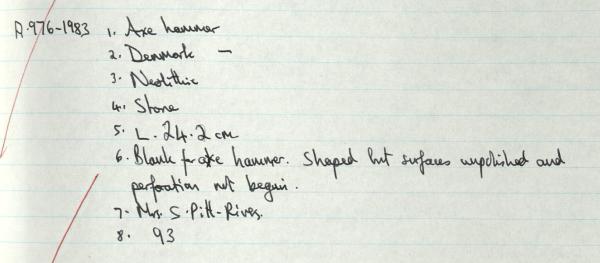 A.976-1983 1. Axe hammer
2. Denmark —
3. Neolithic
4. Stone
5. L. 24.2 cm
6. Blank for axe hammer. Shaped but surfaces unpolished and
perforation not begun.
7. Mrs. S. Pitt-Rivers.
8. 93